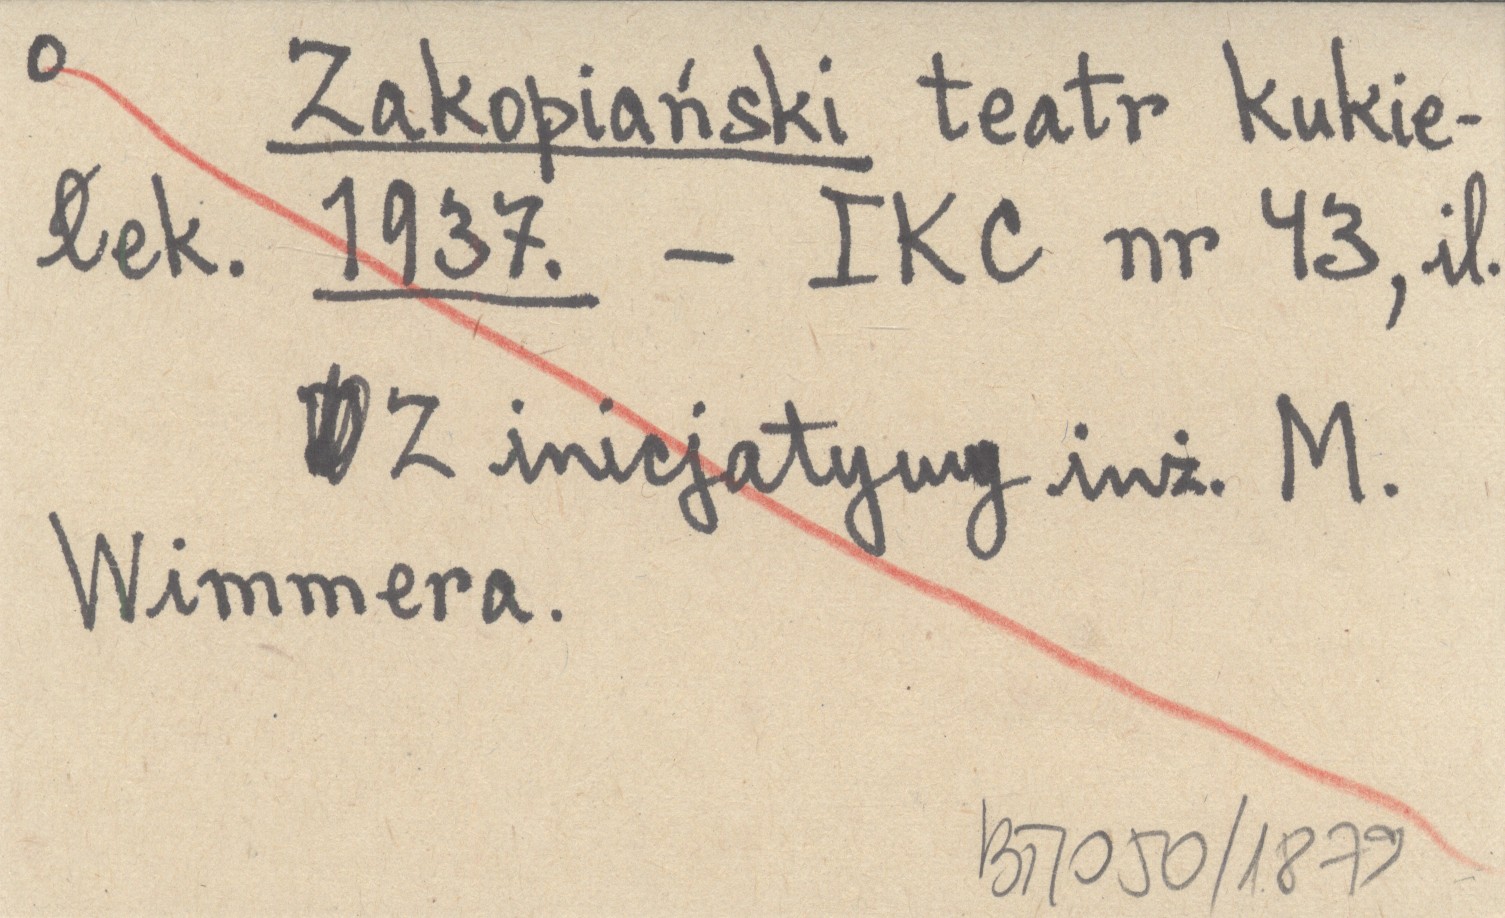 o Zakopiański teatr kukie-
łek. 1937. – IKC nr 43, il.
Z inicjatywy inż. M.
Wimmera.
050/1879